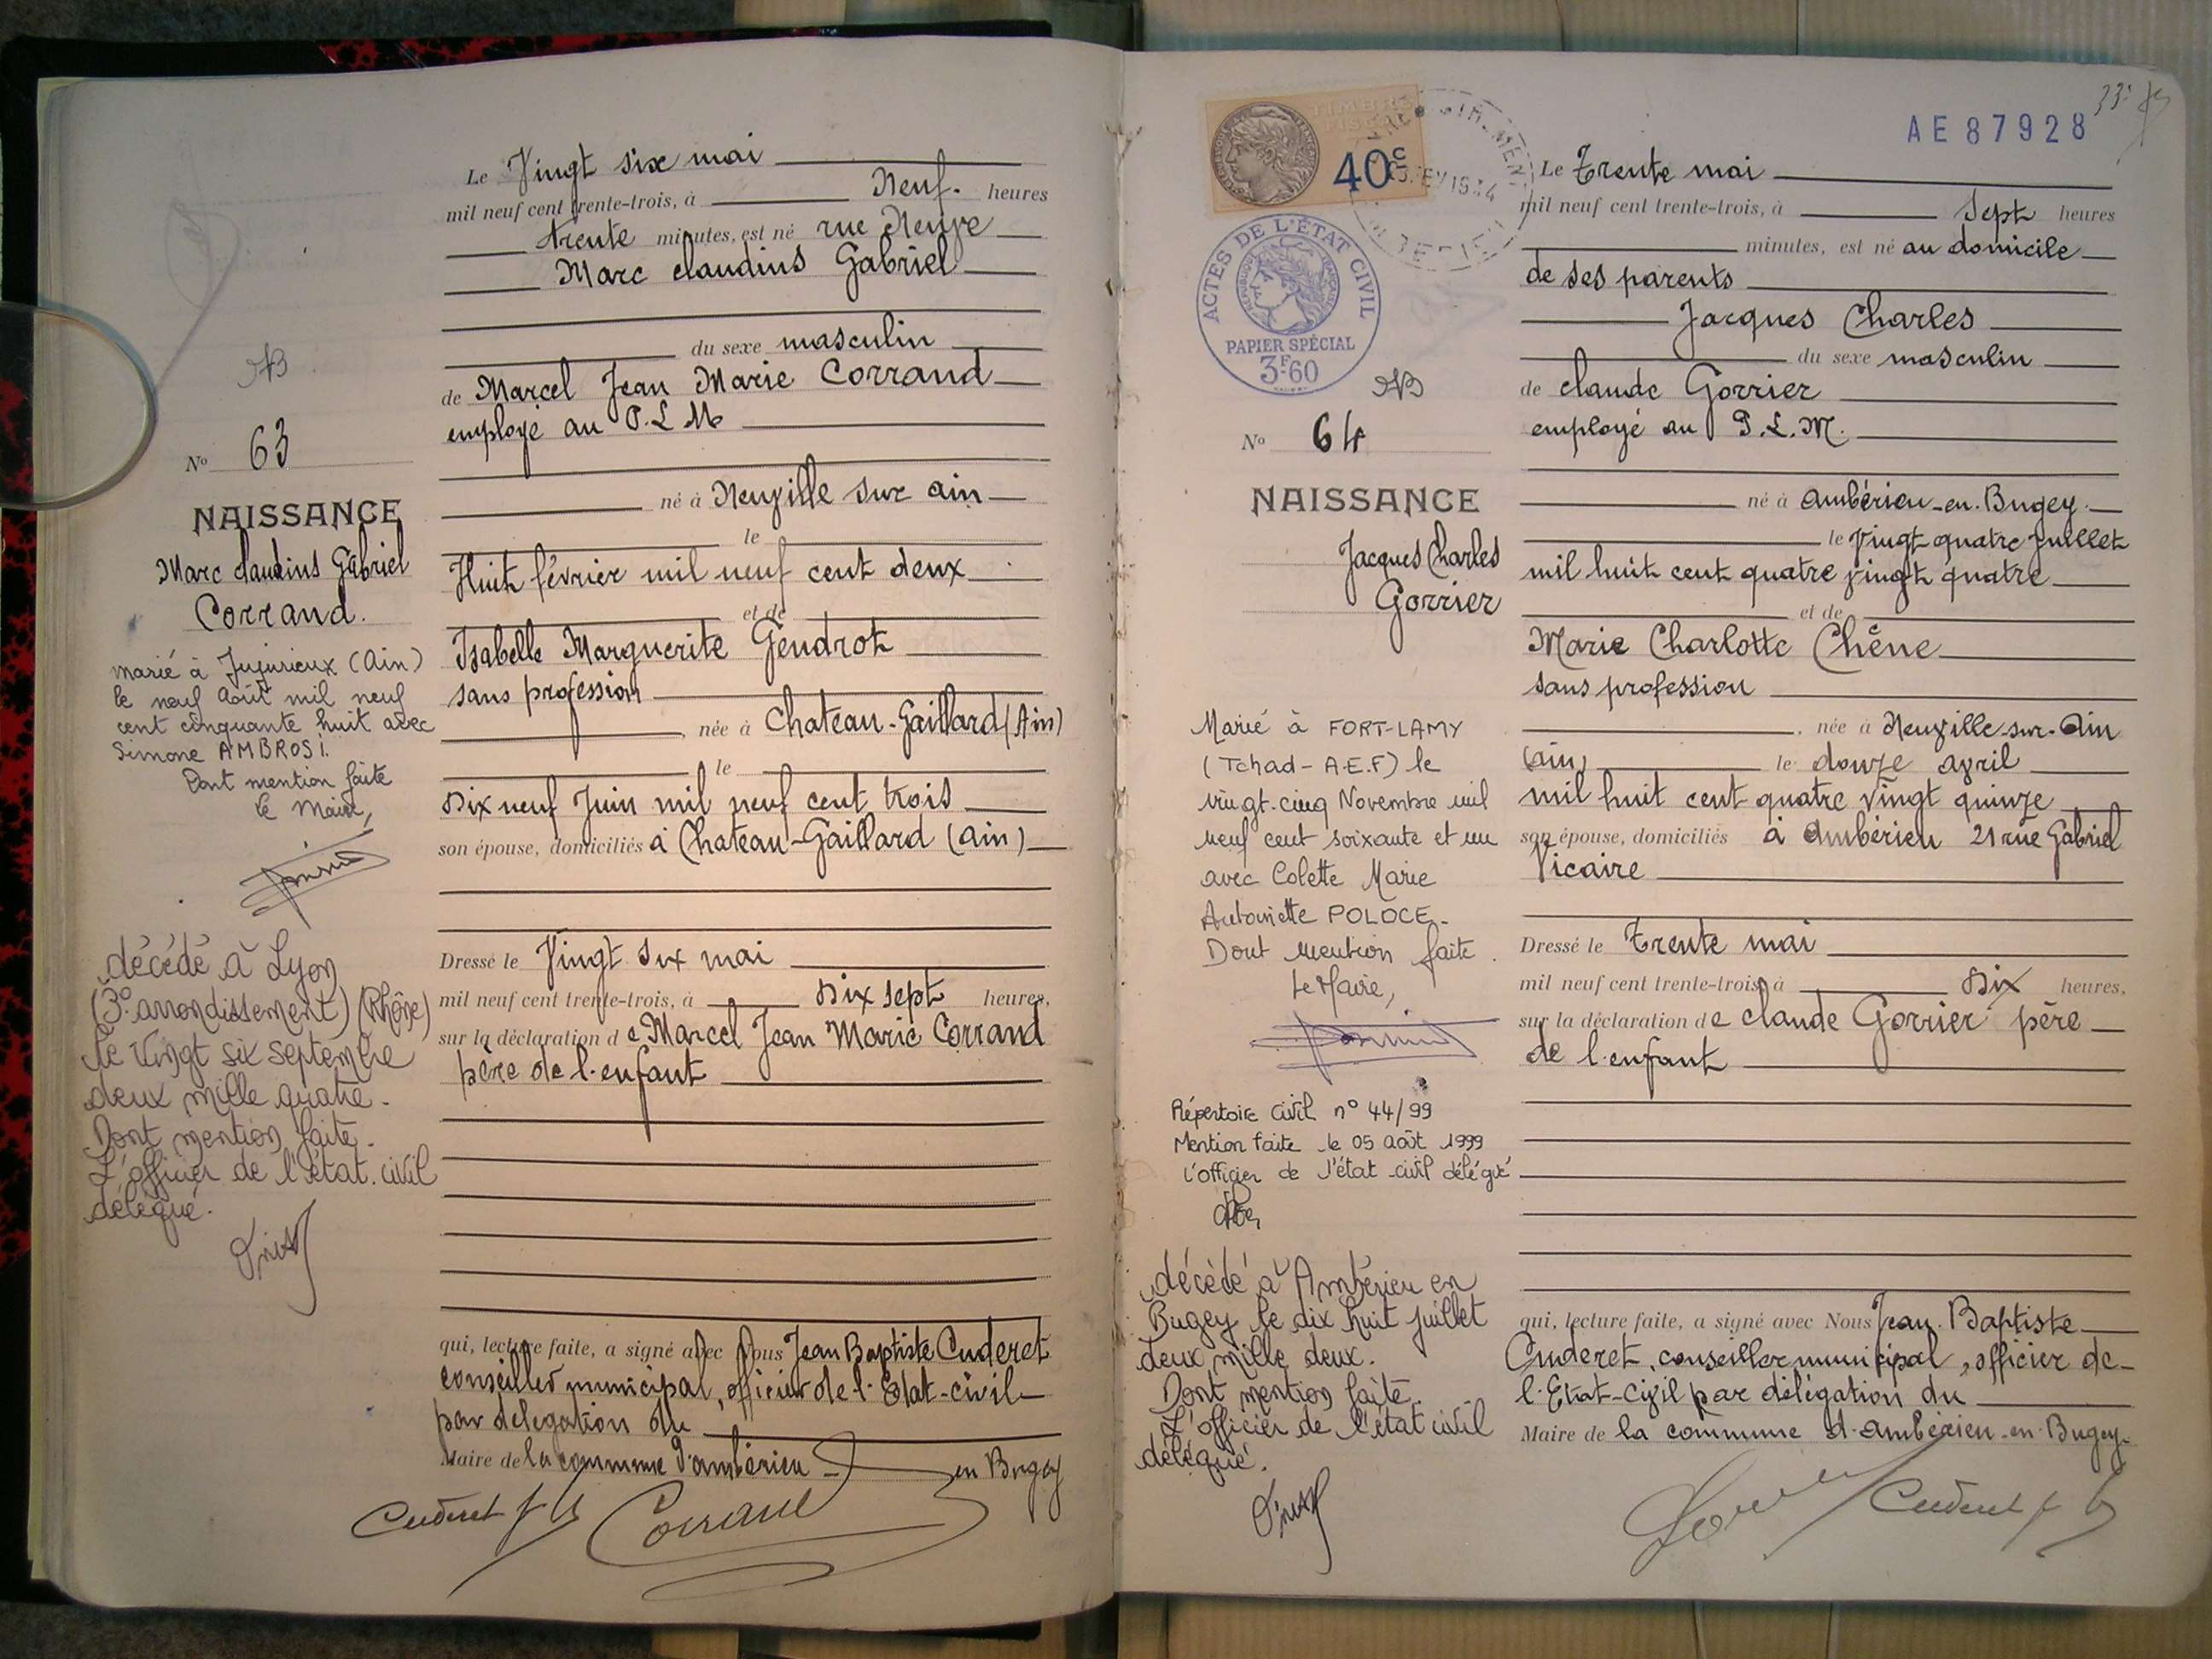 Le Vingt six mai
mil neuf cent trente-trois, à Neuf. heures
trente minutes, est né rue Neuve
Marc Claudius Gabriel
du sexe masculin
de Marcel Jean Marie Corrand
employé au P.L.M
né à Neuville sur ain
le
Huit février mil neuf cent deux
et de
Isabelle Marguerite Gendrot
sans profession
, née à Chateau-Gaillard (Ain)
le
Dix neuf Juin mil neuf cent trois
son épouse, domiciliés à Chateau-Gaillard (Ain)
Dressé le Vingt six mai
mil neuf cent trente-trois, à Dix sept heures,
sur la déclaration de Marcel Jean Marie Corrand
père de l'enfant
qui, lecture faite, a signé avec Nous Jean Baptiste Cuderet
conseiller municipal, officier de l'Etat-civil
par délégation du
Maire de la commune d'ambérieu en Bugey
Cuderet Corrand
N° 63
NAISSANCE
Marc Claudius Gabriel
Corrand.
marié à Jujurieux (Ain)
le neuf Août mil neuf
cent cinquante huit avec
Simone AMBROSI.
Dont mention faite
le Maire,
décédé à Lyon
(3° arrondissement) (Rhône)
le vingt six septembre
deux mille quatre.
Dont mention faite.
L'officier de l'état civil
délégué.
AE87928
TIMBRE
FISCAL
40c
ACTES DE L'ÉTAT CIVIL
PAPIER SPÉCIAL
3F60
N° 64
NAISSANCE
Jacques Charles
Gorrier
Marié à FORT-LAMY
(Tchad - A.E.F) le
vingt-cinq Novembre mil
neuf cent soixante et un
avec Colette Marie
Antoinette POLOCE.
Dont mention faite.
Le Maire,
Répertoire civil n° 44/99
Mention faite le 05 août 1999
L'officier de l'état civil délégué
décédé à Ambérieu en
Bugey le dix huit juillet
deux mille deux.
Dont mention faite.
L'officier de l'état civil
délégué.
Le Trente mai
mil neuf cent trente-trois, à Sept heures
minutes, est né au domicile
de ses parents
Jacques Charles
du sexe masculin
de Claude Gorrier
employé au P.L.M.
né à ambérieu-en-Bugey.
le Vingt quatre juillet
mil huit cent quatre vingt quatre
et de
Marie Charlotte Chêne
sans profession
, née à Neuville-sur-Ain
(ain) le douze avril
mil huit cent quatre vingt quinze
son épouse, domiciliés à Ambérieu 21 rue Gabriel
Vicaire
Dressé le Trente mai
mil neuf cent trente-trois, à Dix heures,
sur la déclaration de Claude Gorrier père
de l'enfant
qui, lecture faite, a signé avec Nous Jean Baptiste
Cuderet, conseiller municipal, officier de
l'Etat-Civil par délégation du
Maire de la commune d'ambérieu-en-Bugey.
Cuderet